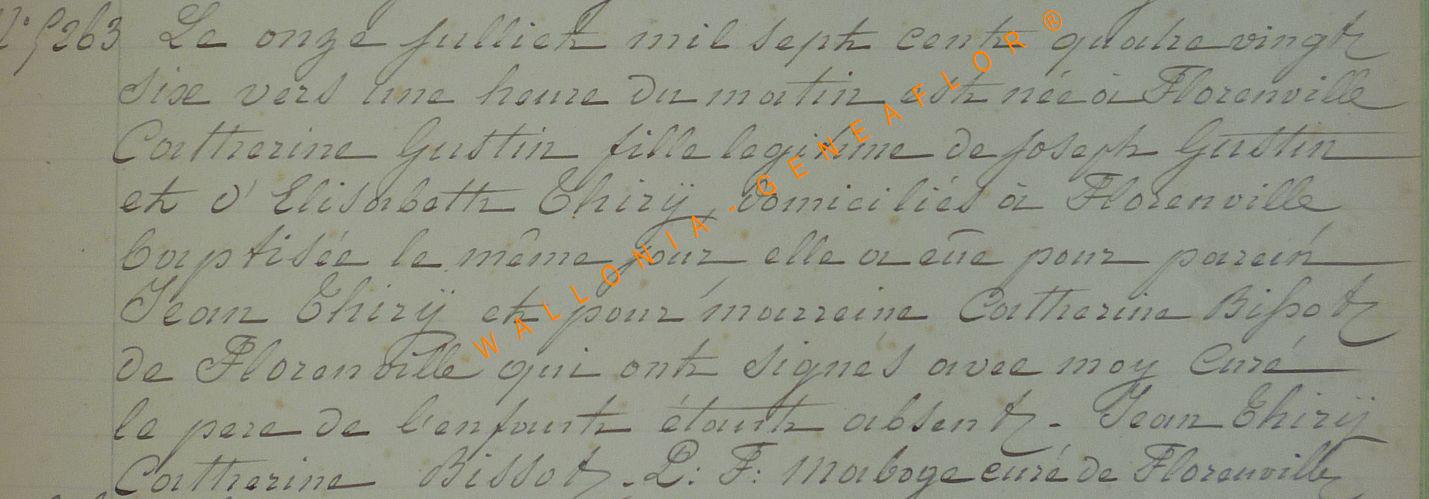 N° 5263 Le onze julliet mil sept cent quatre vingt
six vers une heure du matin est née à Florenville
Catherine Gustin fille legitime de joseph Gustin
et d'Elisabeth Thirÿ domiciliés à Florenville
baptisée le même jour elle a eüe pour parein
Jean Thirÿ et pour marreine Catherine Bissot
de Florenville qui ont signés avec moy curé
le pere de l'enfant étant absent. Jean Thirÿ
Catherine Bissot. P: F: Maboge curé de Florenville
WALLONIA - GENEAFLOR ®